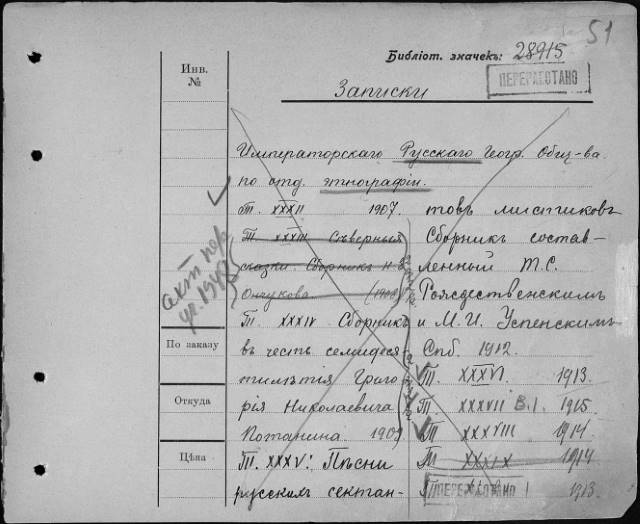 51
Библіот. значекъ: 28915
ПЕРЕРАБОТАНО
Записки
Инв.
№
Императорскаго Русскаго Геогр. Общ-ва
по отд. этнографіи.
Т. XXXII 1907.
Т. XXXIII Сѣверныя
сказки. Сборникъ Н. Е.
Ончукова. (1908)
Т. XXXIV Сборникъ
въ честь семидеся-
тилѣтія Григо-
рія Николаевича
Потанина. 1909
Т. XXXV: Пѣсни
русскихъ сектан-
товъ мистиковъ
Сборникъ состав-
ленный Т. С.
Рождественскимъ
и М. И. Успенскимъ
Спб. 1912.
Т. XXXVI 1913.
Т. XXXVII В. I. 1915
Т. XXXVIII 1914.
Т. XXXIX 1914
1913.
ПЕРЕРАБОТАНО
акт пер
По заказу
Откуда
Цѣна